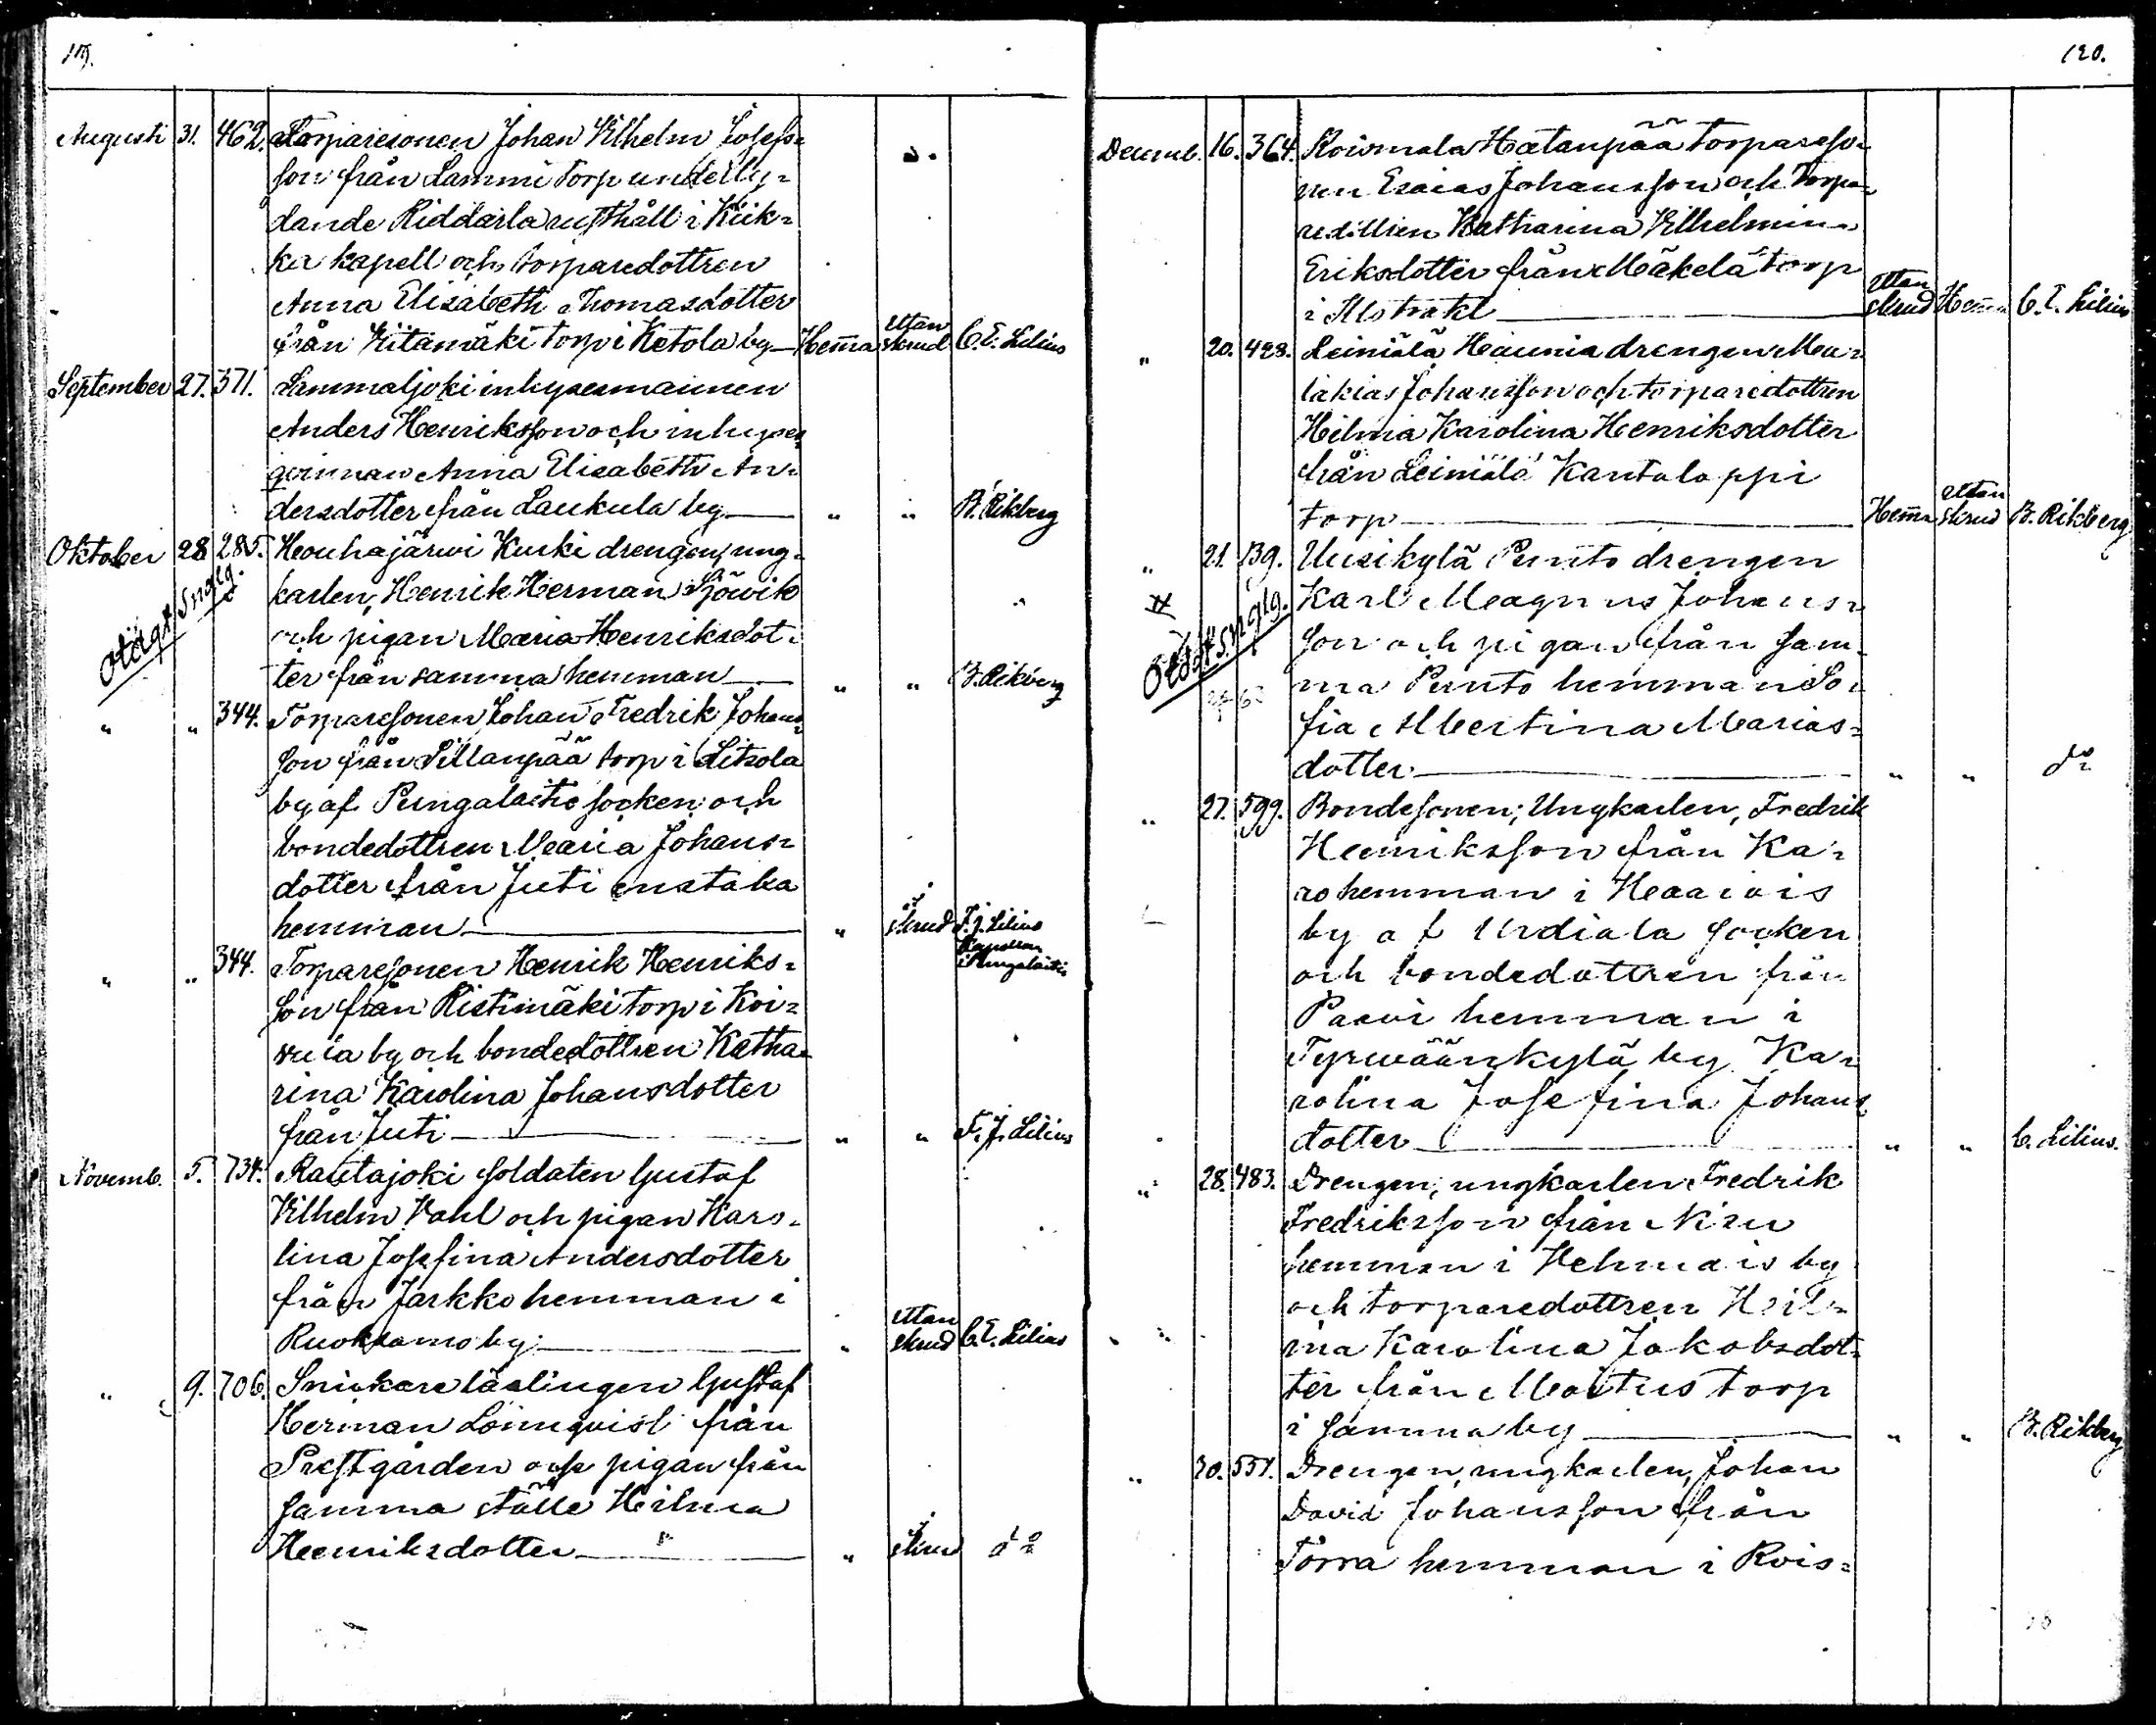 119.
Augusti 31. 462. Torparesonen Johan Vilhelm Josefs-
son från Lammi Torp underly-
dande Riddarla rusthåll i Kiik-
ka kapell och torparedottren
Anna Elisabeth Thomasdotter
från Yitämäki torp i Ketola by Hemma utan skrud C. E. Lilius
September 27. 371. Lammaljoki inhysesmannen
Anders Henriksson och inhyses
qvinnan Anna Elisabeth An-
dersdotter från Laukula by " " B. Rikberg
Oktober 28 285. Houhajärwi Kuski drengen, ung-
karlen, Henrik Herman Sjöwik
och pigan Maria Henriksdot-
ter från samma hemman " " B. Rikberg
Otägt Snglg.
" " 344. Torparesonen Johan Fredrik Johans-
son från Sillanpää torp i Litsola
by af Pungalaitio socken och
bondedottren Maria Johans-
dotter från Juti enstaka
hemman " i skrud F. J. Lilius
Kapellan
i Pungalaitio
" " 344. Torparesonen Henrik Henriks-
son från Ristimäki torp i Koi-
by och bondedottren Katha-
rina Karolina Johansdotter
från Juti " " F. J. Lilius
Novemb. 5. 734. Rautajoki soldaten Gustaf
Vilhelm Vahl och pigan Karo-
lina Josefina Andersdotter
från Jarkko hemman i
Ruoksamo by " utan skrud C. E. Lilius
" 9. 706. Snickare lärlingen Gustaf
Herman Lönnqvist från
Prestgården och pigan från
samma ställe Hilma
Henriksdotter " i skrud do
120.
Decemb. 16. 364. Roismala Hatanpää torpareso-
nen Esaias Johansson och Torpa-
redottren Katharina Vilhelmina
Eriksdotter från Mäkelä torp
i utan skrud Hemma C. E. Lilius
" 20. 428. Leiniälä Heunia drengen Ma-
lakias Johansson och torparedottren
Hilma Karolina Henriksdotter
från Leiniälä Kantaloppi
torp Hemma utan skrud B. Rikberg
" 21. 139. Uusikylä Punto drengen
Karl Magnus Johans-
son och pigan från sam-
ma Punto hemman So-
fia Albertina Marias-
dotter " " do
Otägt Snglg.
" 27. 599. Bondesonen, Ungkarlen, Fredrik
Henriksson från Ka-
ro hemman i
by af Urdiala socken
och bondedottren från
Paavi hemman i
Tyrwäänkylä by Ka-
rolina Josefina Johans
dotter " " C. Lilius.
" 28. 483. Drengen, ungkarlen Fredrik
Fredriksson från Niru
hemman i Kehmais by
och torparedottren Hil-
ma Karolina Jakobsdot-
ter från Mattus torp
i samma by " " B. Rikberg
" 30. 551. Drengen, ungkarlen, Johan
David Johansson från
Torra hemman i Rois-